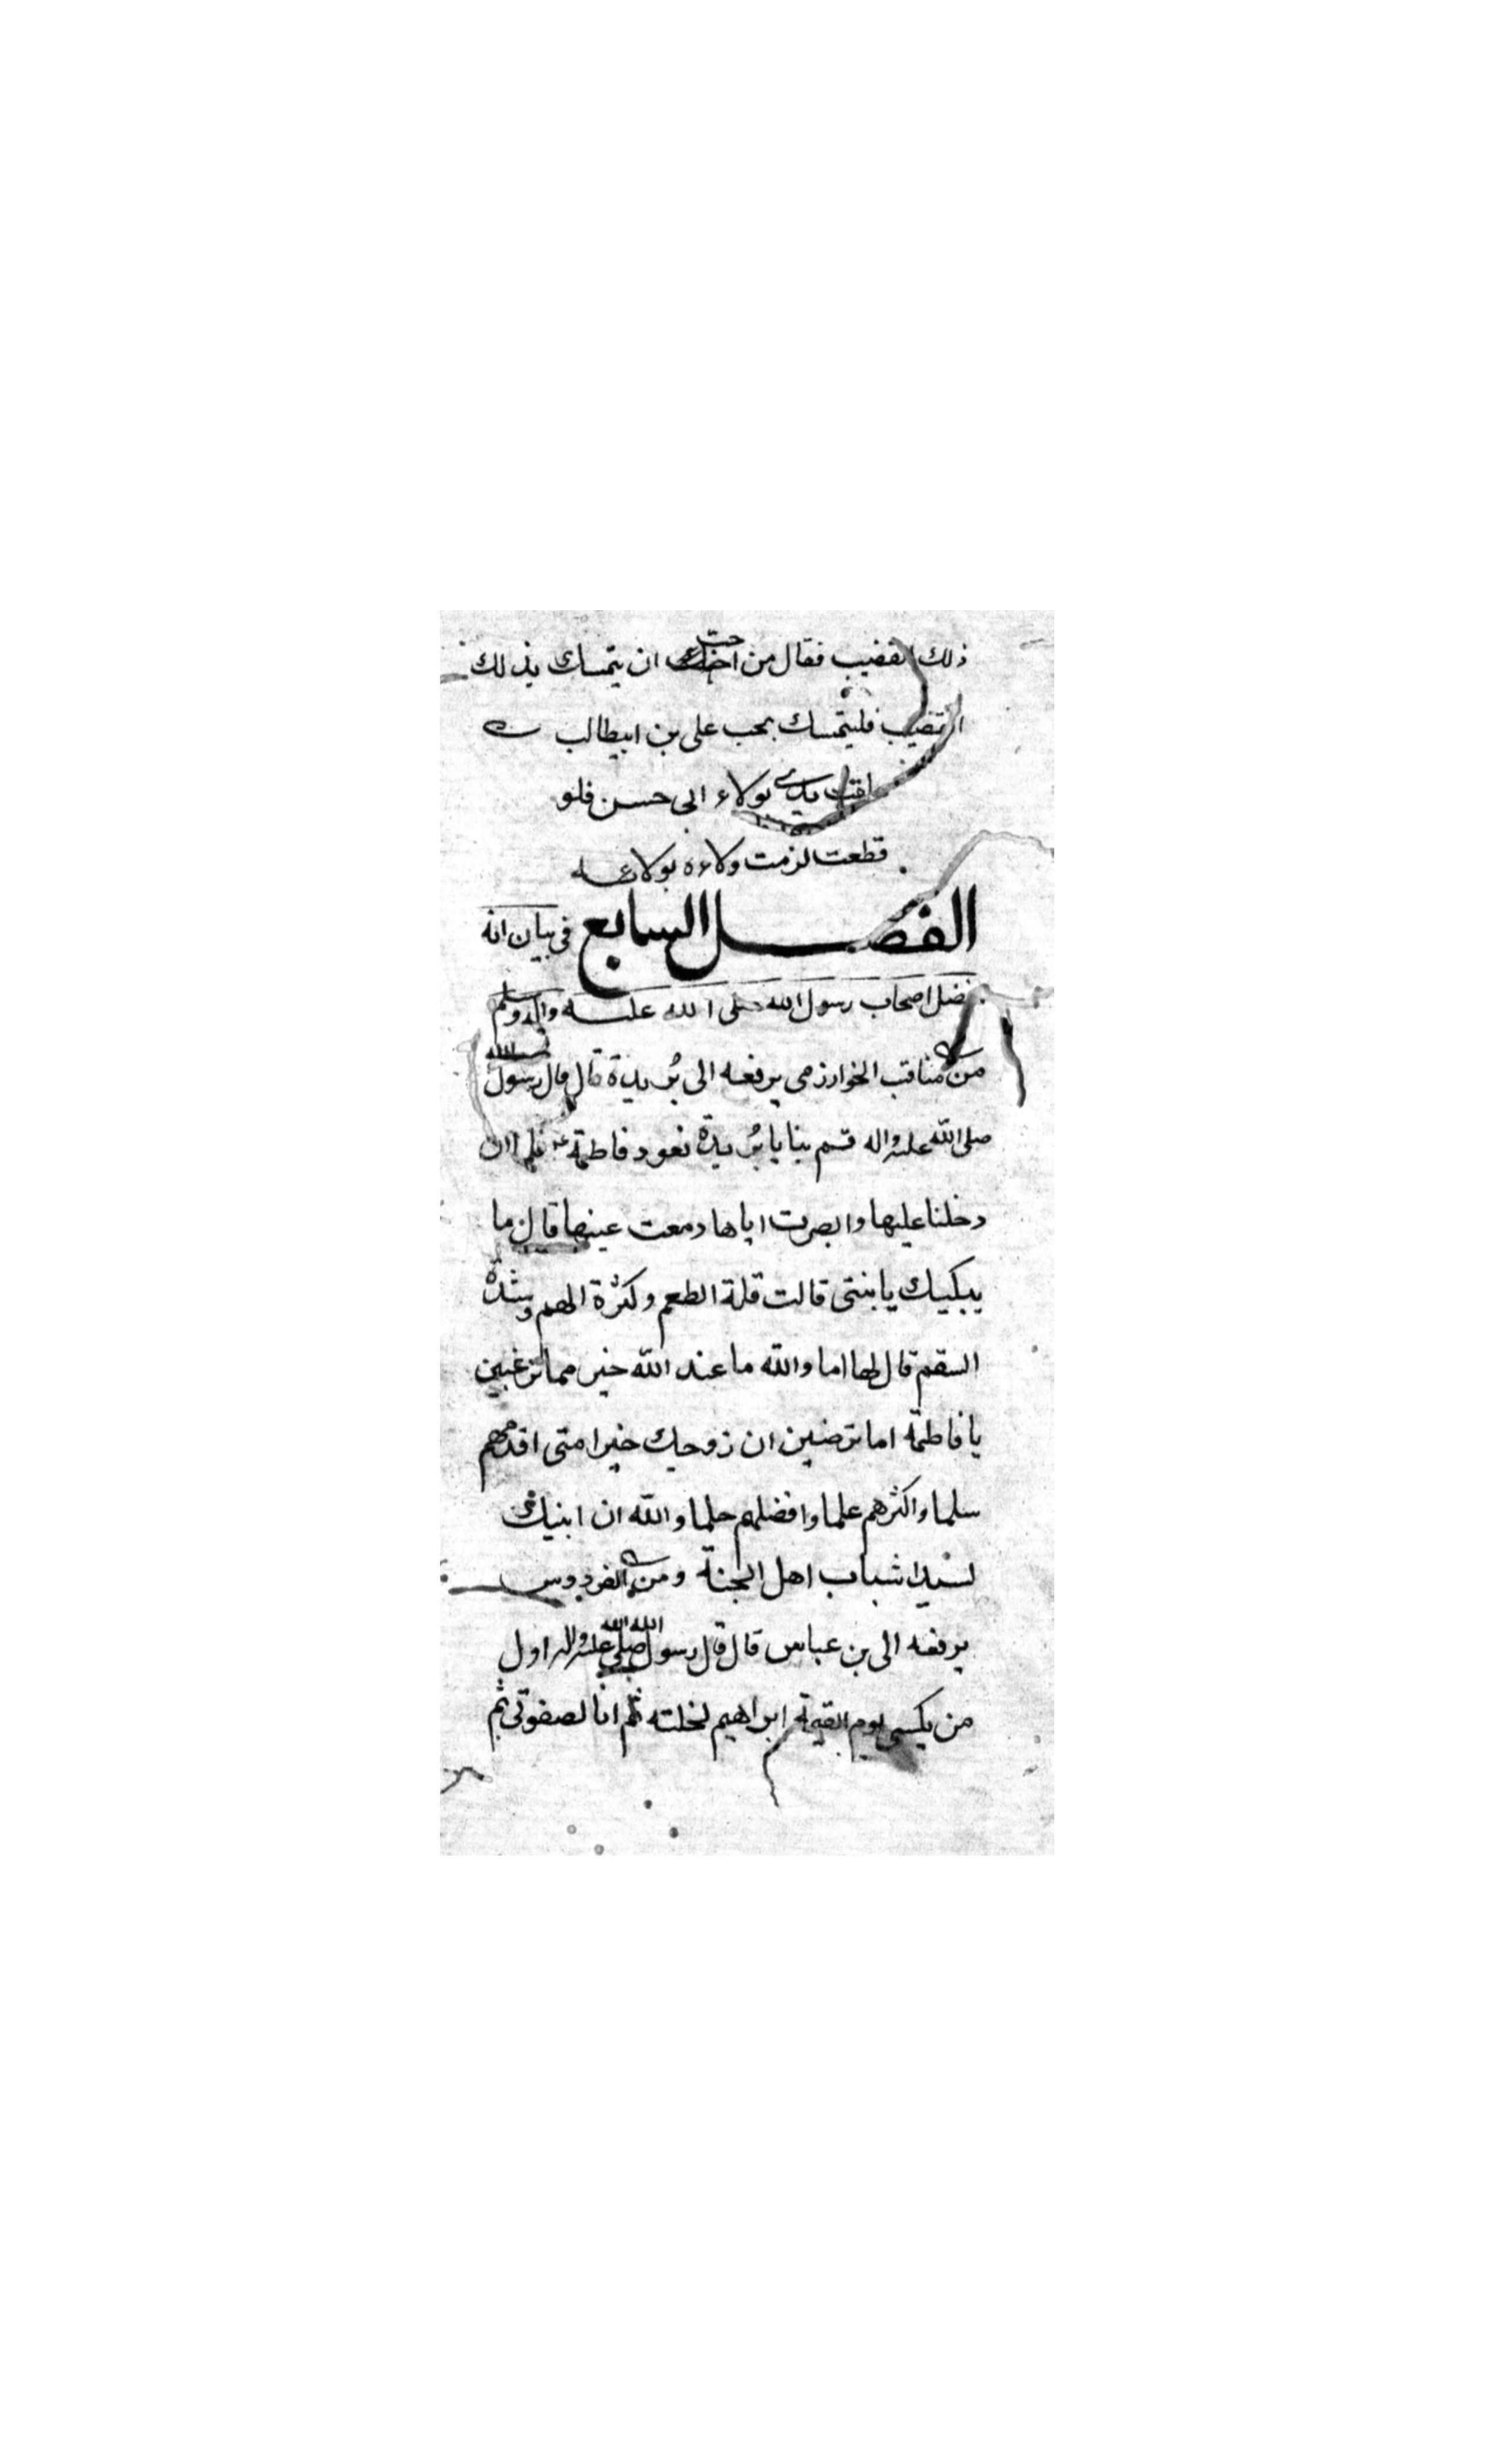 ذلك القضيب فقال من احب ان يتمسك بذلك
القضيب فليتمسك بحب علي بن ابيطالب
علقت يدي بولاء ابي حسن فلو
قطعت لزمت ولاءه بولاء
الفصل السابع في بيان انه
افضل اصحاب رسول الله صلى الله عليه واله وسلم
من مناقب الخوارزمي يرفعه الى بُريدة قال قال رسول الله
صلى الله عليه واله قسم بنا يا بُريدة نعود فاطمة فلما ان
دخلنا عليها وابصرت اباها دمعت عينها قال ما
يبكيك يا بنتي قالت قلة الطعم وكثرة الهم وشدة
السقم قال لها اما والله ما عند الله خير مما ترغبين
يا فاطمة اما ترضين ان زوجك خير امتي اقدمهم
سلما واكثرهم علما وافضلهم حلما والله ان ابنيك
لسيدا شباب اهل الجنة ومن الفردوس
يرفعه الى بن عباس قال قال رسول الله صلى الله عليه واله اول
من يكسى يوم القيمة ابراهيم لخلته ثم انا لصفوتي ثم